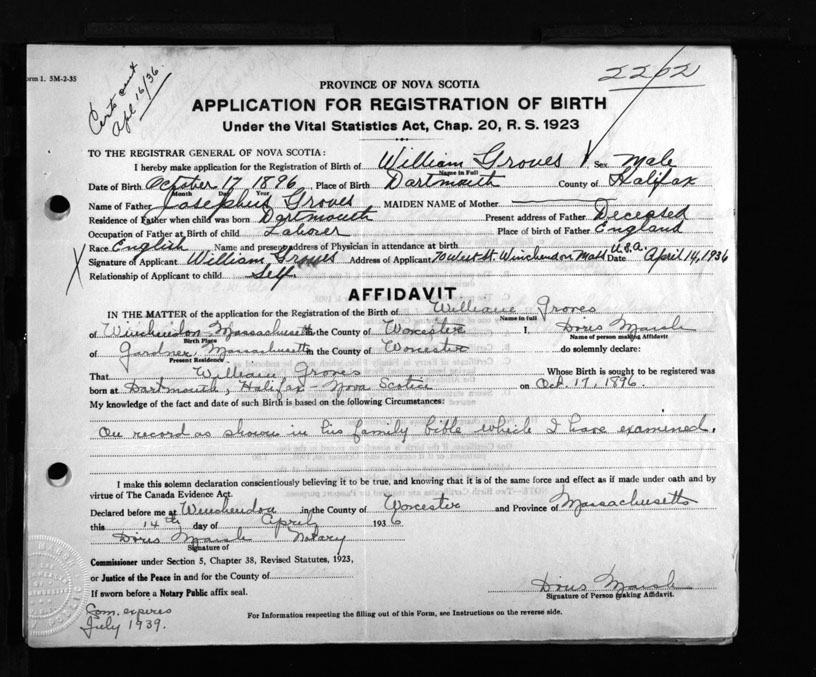 Form 1. 5M-2-35
Certs sent
Apl 16/36.
2202
PROVINCE OF NOVA SCOTIA
APPLICATION FOR REGISTRATION OF BIRTH
Under the Vital Statistics Act, Chap. 20, R. S. 1923
TO THE REGISTRAR GENERAL OF NOVA SCOTIA:
I hereby make application for the Registration of Birth of William Groves Sex Male
Name in Full
Date of Birth October 17 1896 Place of Birth Dartmouth County of Halifax
Month Day Year
Name of Father Josephus Groves MAIDEN NAME of Mother
Residence of Father when child was born Dartmouth Present address of Father Deceased
Occupation of Father at Birth of child Laborer Place of birth of Father England
Race English Name and present address of Physician in attendance at birth
Signature of Applicant William Groves Address of Applicant 70 West St. Winchendon Mass U.S.A. Date April 14, 1936
Relationship of Applicant to child Self.
AFFIDAVIT
IN THE MATTER of the application for the Registration of the Birth of William Groves
Name in full
of Winchendon Massachusetts in the County of Worcester I, Doris Marsh
Birth Place Name of person making Affidavit
of Gardner, Massachusetts in the County of Worcester do solemnly declare:
Present Residence
That William Groves Whose Birth is sought to be registered was
born at Dartmouth, Halifax - Nova Scotia on Oct. 17, 1896.
My knowledge of the fact and date of such Birth is based on the following Circumstances:
On record as shown in his family bible which I have examined.
I make this solemn declaration conscientiously believing it to be true, and knowing that it is of the same force and effect as if made under oath and by
virtue of The Canada Evidence Act.
Declared before me at Winchendon in the County of Worcester and Province of Massachusetts
this 14th day of April 1936
Doris Marsh Notary
Signature of
Commissioner under Section 5, Chapter 38, Revised Statutes, 1923,
or Justice of the Peace in and for the County of
If sworn before a Notary Public affix seal.
Doris Marsh
Signature of Person making Affidavit.
Com. expires
July 1939.
For Information respecting the filling out of this Form, see Instructions on the reverse side.